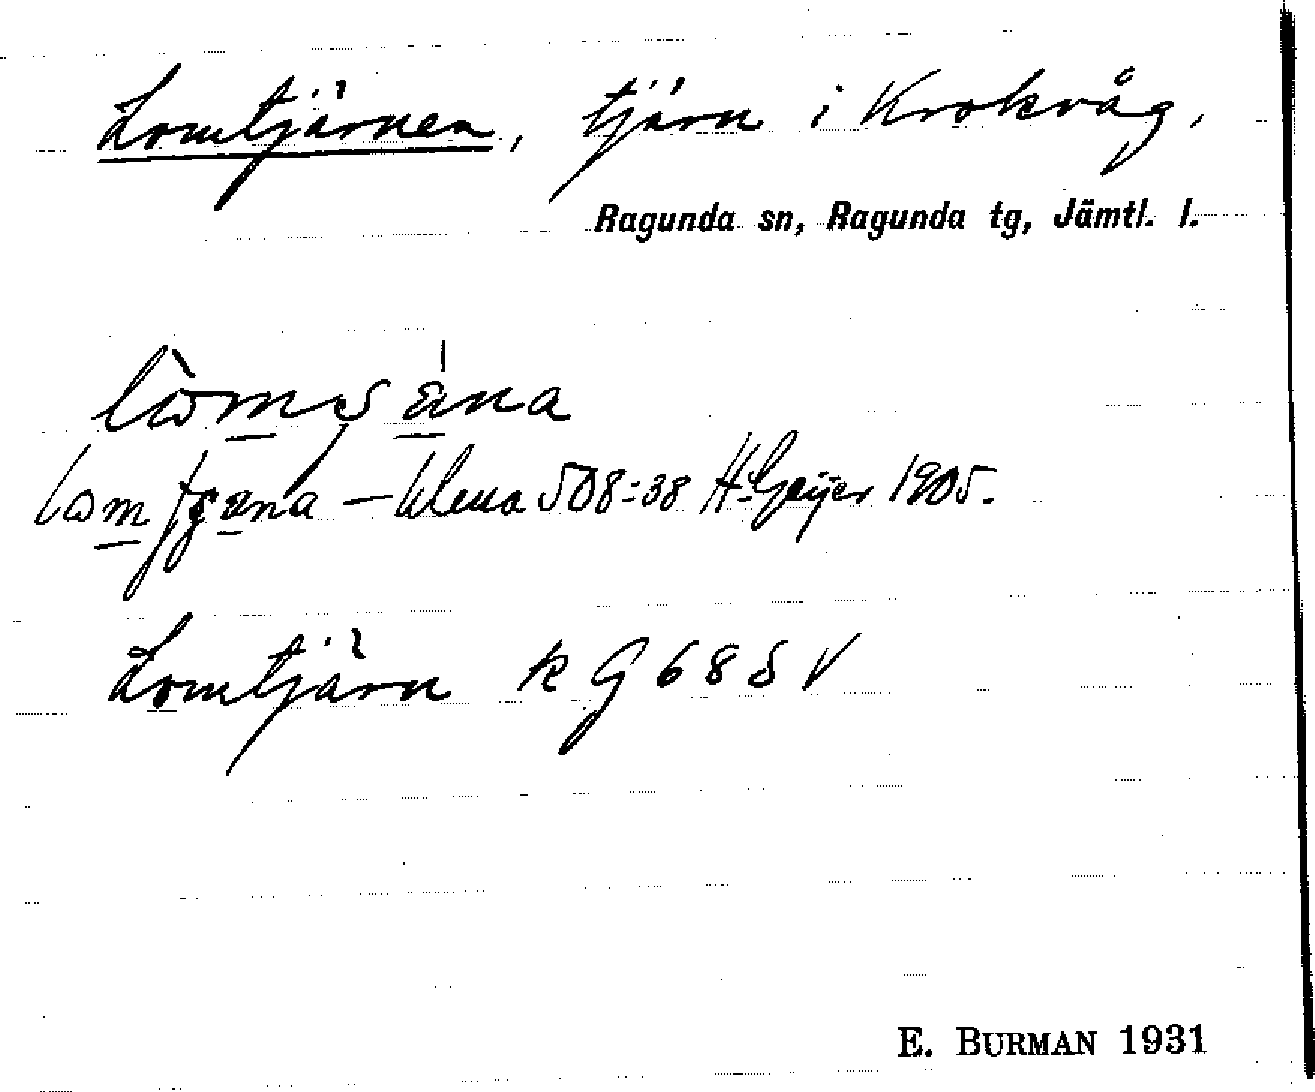 Lomtjärnen, tjärn i Krokvåg,
Ragunda sn, Ragunda tg, Jämtl. l.
508:38 H. Geijer 1905.
Lomtjärn k G 68 S V
E. BURMAN 1931